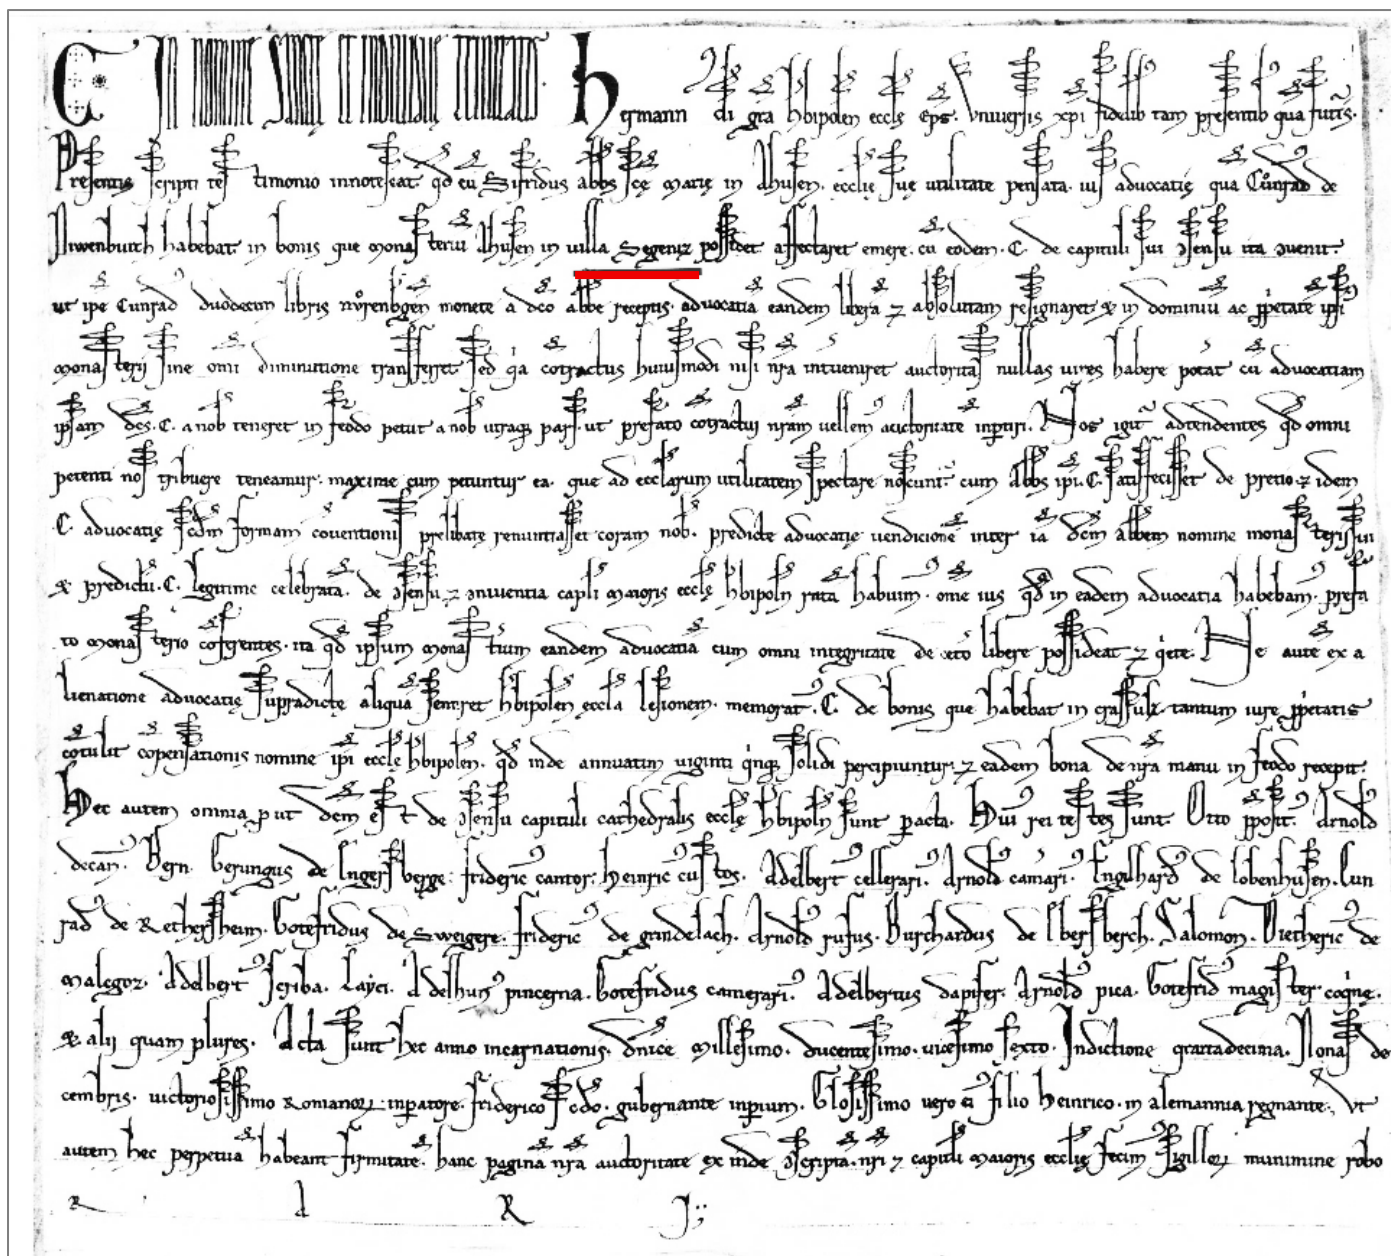 C In nomine sancte et individue trinitatis. hermann di gra hbipolen eccle Eps. Vniuersis xpi fidelib tam presentib qua futuris.
Presentis scripti testimonio innotescat. qd cu Sifridus abbs sce marie in Ahusen. ecclie sue utilitate pensata. ius aduocatie qua Cunrad de
habebat in bonis que monasteriu Ahusen in uilla Segeniz possidet affectaret emere. cu eodem. C. de capituli sui ↄsensu ita ↄuenit.
ut ipe Cunrad duodecim libris monete a dco abbe receptis. aduocatia eandem libera ⁊ absolutam resignaret. & in dominiu ac ppetate ipsi
monasterii sine omi diminutione transferret. sed qa cotractus huiusmodi nisi nra intueniret auctoritas nullas uires habere potat cu aduocatiam
ipsam des. C. a nob teneret in feodo petiit a nob utraq pars. ut prefato cotractui nram uellem auctoritate inptiri. Nos igit adtendentes qd omni
petenti nos tribuere teneamur. maxime cum petuntur ea. que ad ecclarum utilitatem spectare noscunt. cum Abbs ipi. C. satisfecisset de pretio. ⁊ idem
C. aduocatie scdm formam couentionis prelibate renuntiasset coram nob. predicte aduocatie uendicione inter ia dcm abbem nomine monasterii sui
& predictu. C. legitime celebrata. de ↄsensu ⁊ ↄniuentia capli maioris eccle hbipoln rata habuim. ome ius qd in eadem aduocatia habebam. prefa
to monasterio coferentes. ita qd ipsum monastium eandem aduocatia cum omni integritate de libere possideat ⁊ qete. Ne aute ex a
lienatione aduocatie supradicte aliqua sentiret hbipolen eccla lesionem. memorat. C. de bonis que habebat in tantum iure ppetatis
cotulit copensationis nomine ipi eccle hbipolen. qd inde annuatim uiginti qnq solidi percipiuntur. ⁊ eadem bona de nra manu in feodo recepit.
Hec autem omnia put dcm est de ↄsensu capituli cathedralis eccle hbipoln sunt pacta. Hui rei testes sunt Otto pposit. Arnold
decan. Bern. berungus de frideric cantor. Heinric custos. Adelbert cellerari. Arnold camari. Engilhard de lobenhusen. Cun
rad de Rethersheim. Gotefridus de Sweigere. frideric de grindelach. Arnold rufus. Burchardus de Salomon. Dietheric de
malegoz. Adelbert scriba. Layci. Adelhun pincerna. Gotefridus camerari. Adelbertus dapifer. Arnold pica. Gotefrid magister coqine.
& alii quam plures. Acta sunt hec anno incarnationis. dnice Millesimo. ducentesimo. uicesimo sexto. Indictione quartadecima. Nonas de
cembris. uictoriosissimo Romanoꝝ inpatore. friderico scdo. gubernante inperium. Glosissimo uero ei filio Heinrico. in alemannia regnante. Vt
autem hec perpetua habeant firmitate. hanc pagina nra auctoritate ex inde ↄscripta. nri ⁊ capituli maioris ecclie fecim sigilloꝝ munimine robo
R A R I.